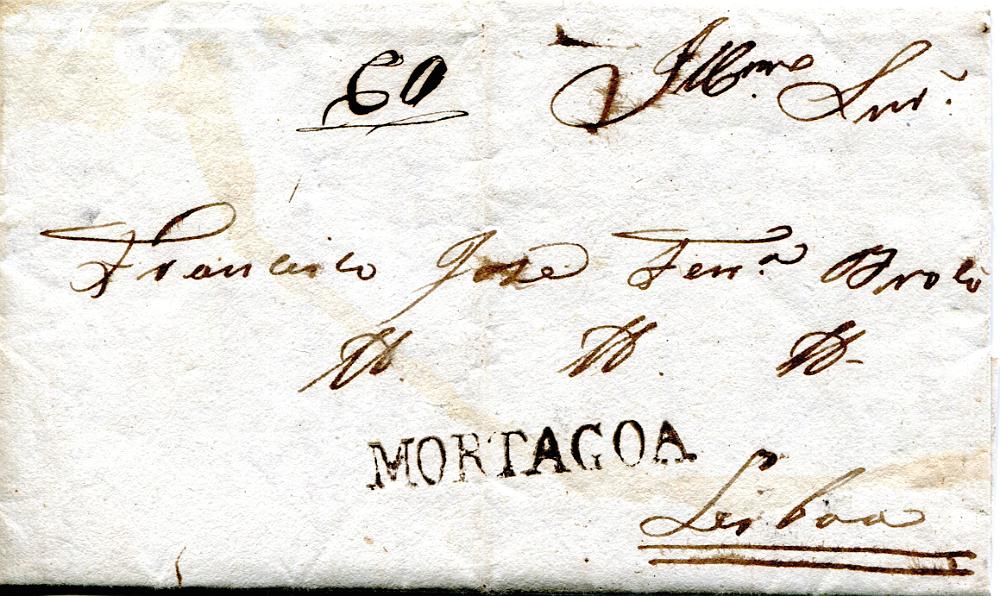 60 Illmo. Snr.
Francisco Joze Ferra
MORTAGOA
Lisboa